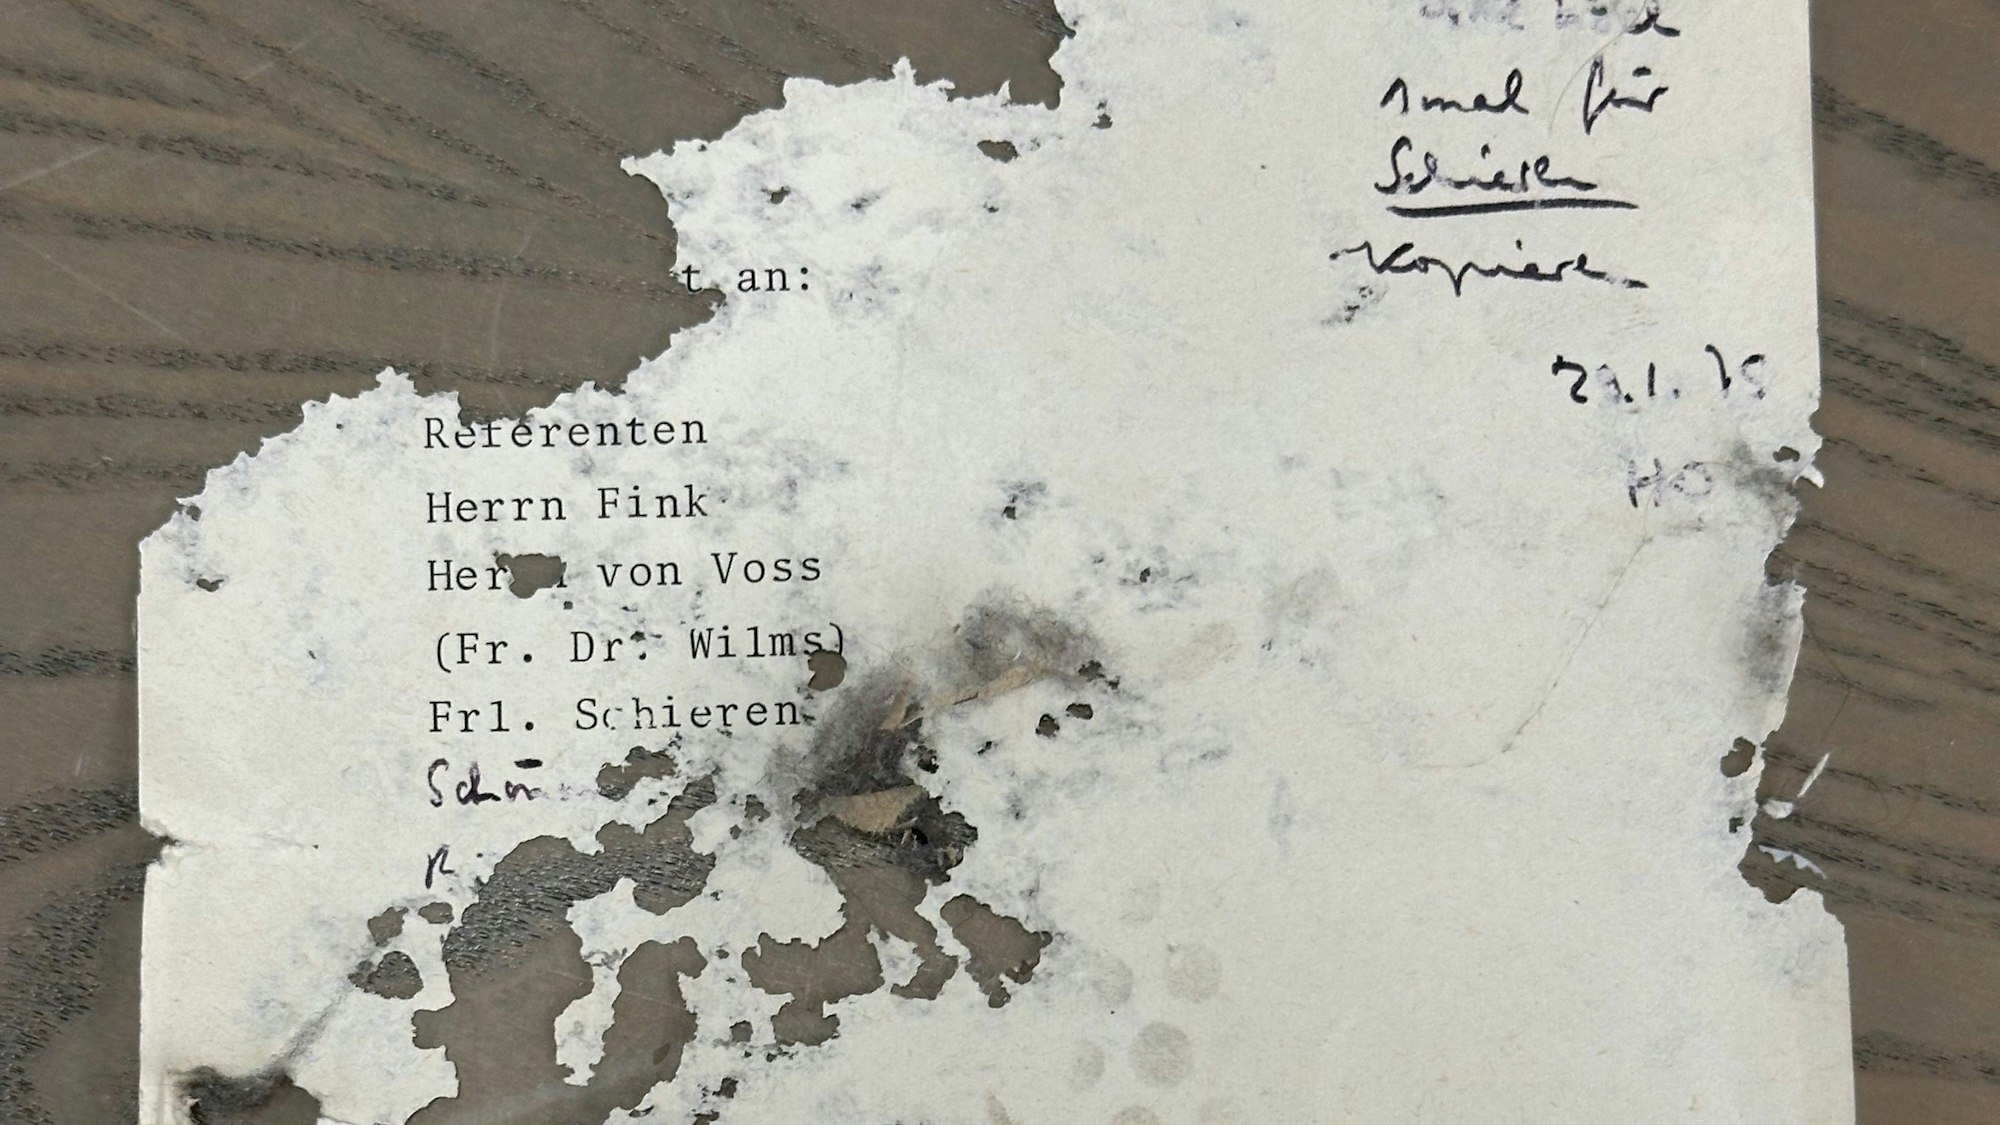 1mal für
Schieren
kopieren
t an:
29.1.75
Referenten
HO
Herrn Fink
Herrn von Voss
(Fr. Dr. Wilms)
Frl. Schieren